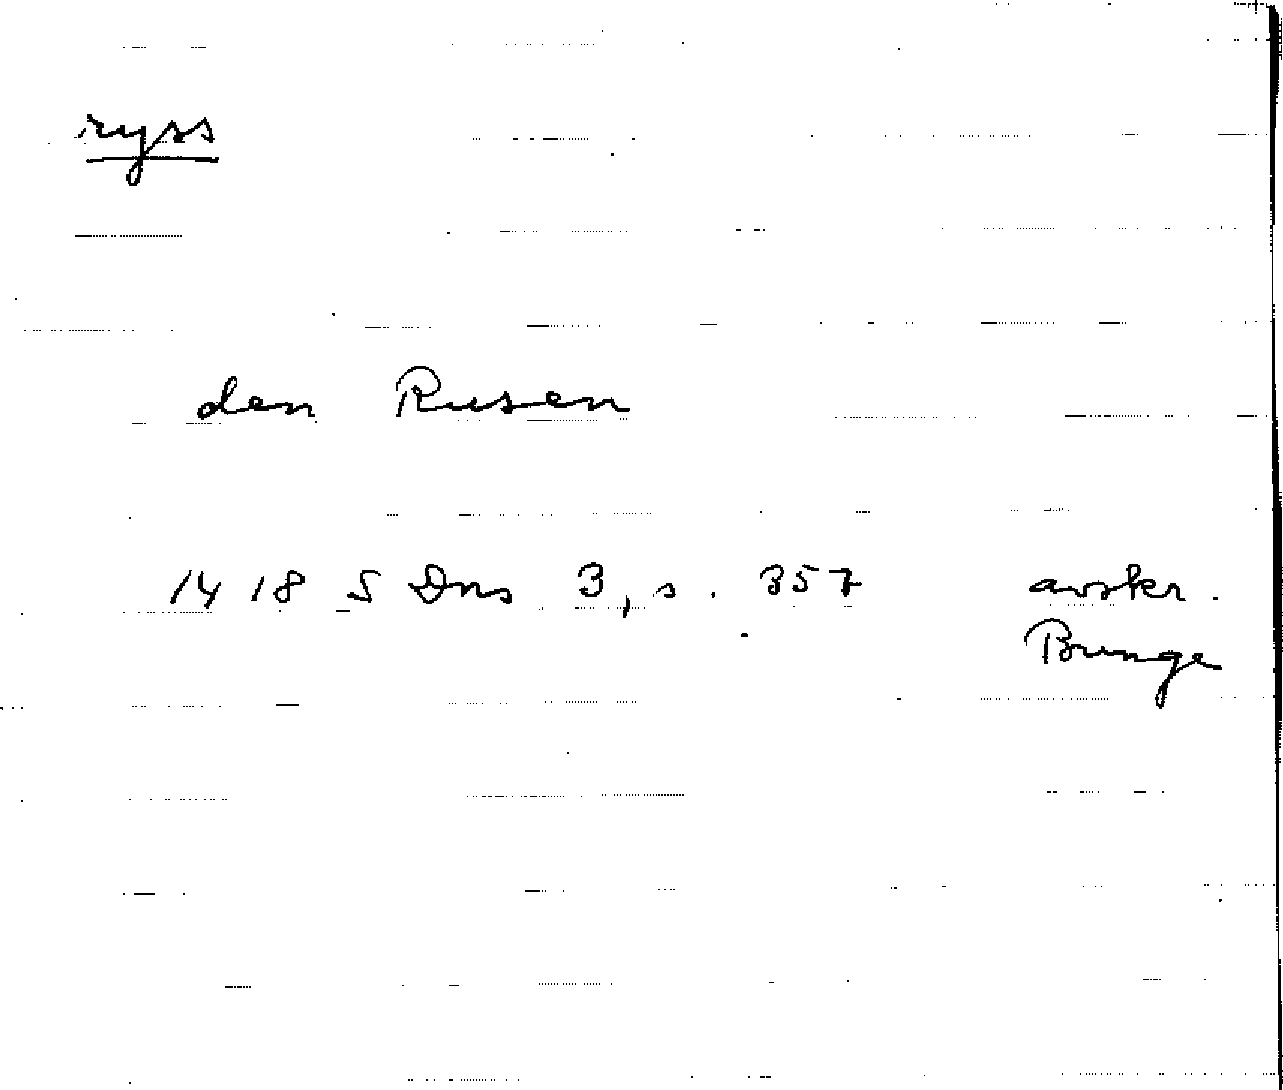 ryss
den Rusen
1418 SDns 3, s. 357 avskr.
Bunge